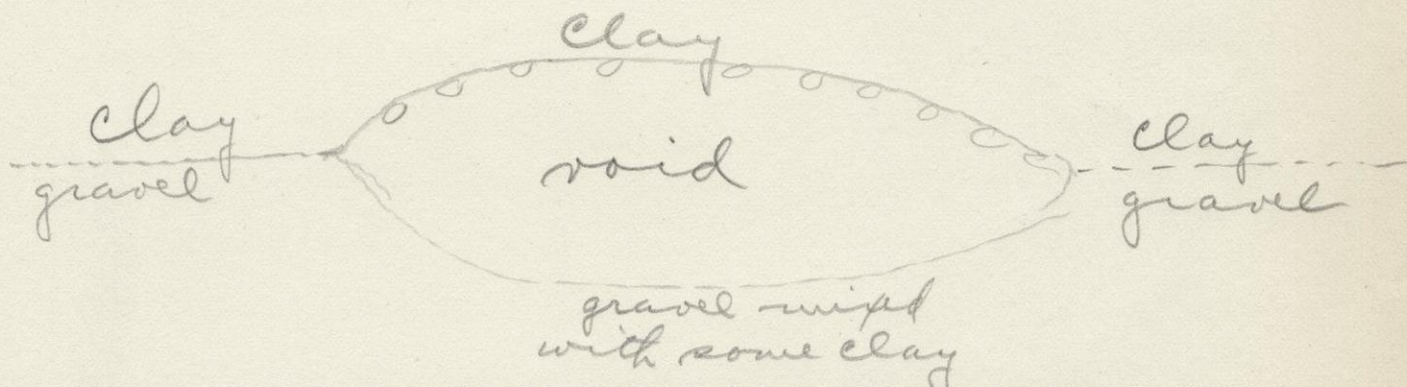 clay
clay
clay
void
gravel
gravel
gravel mixed
with some clay